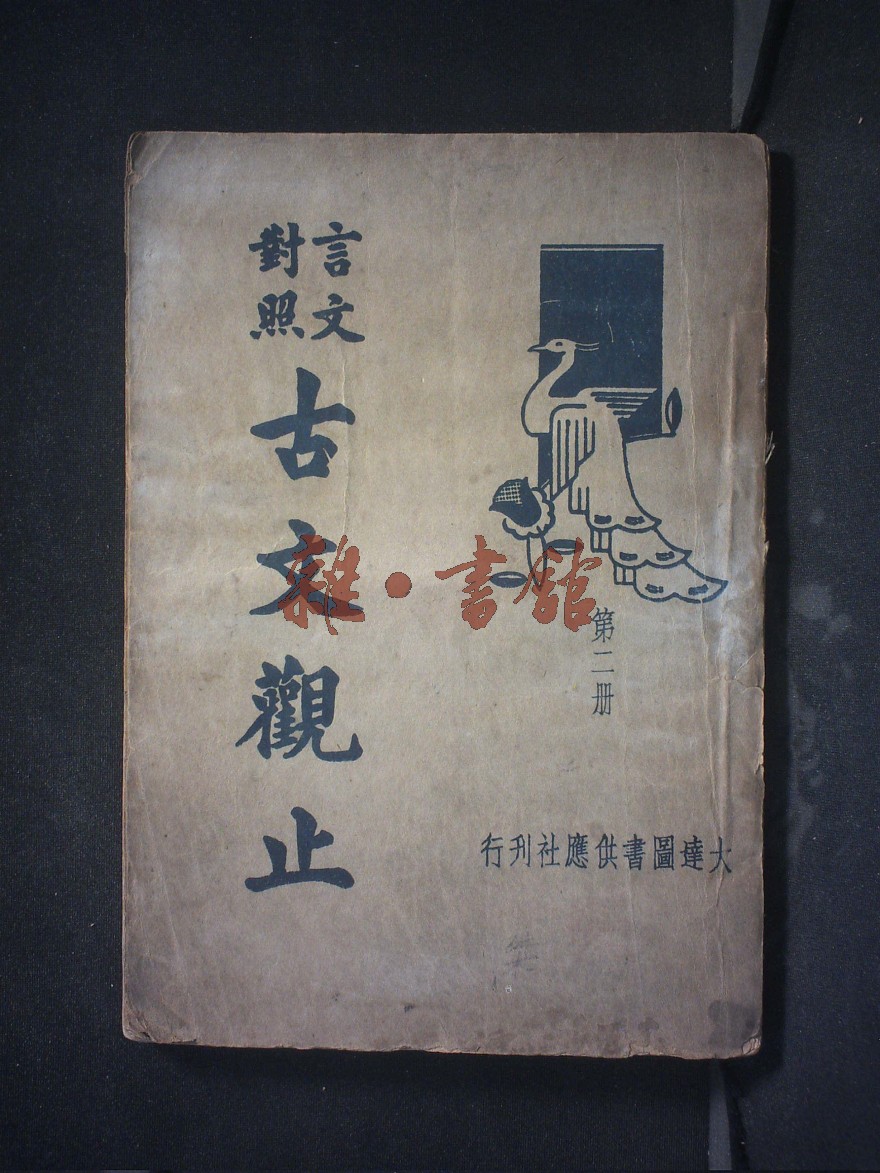 言文
對照
古文觀止
第二册
大達圖書供應社刋行
雜•書館